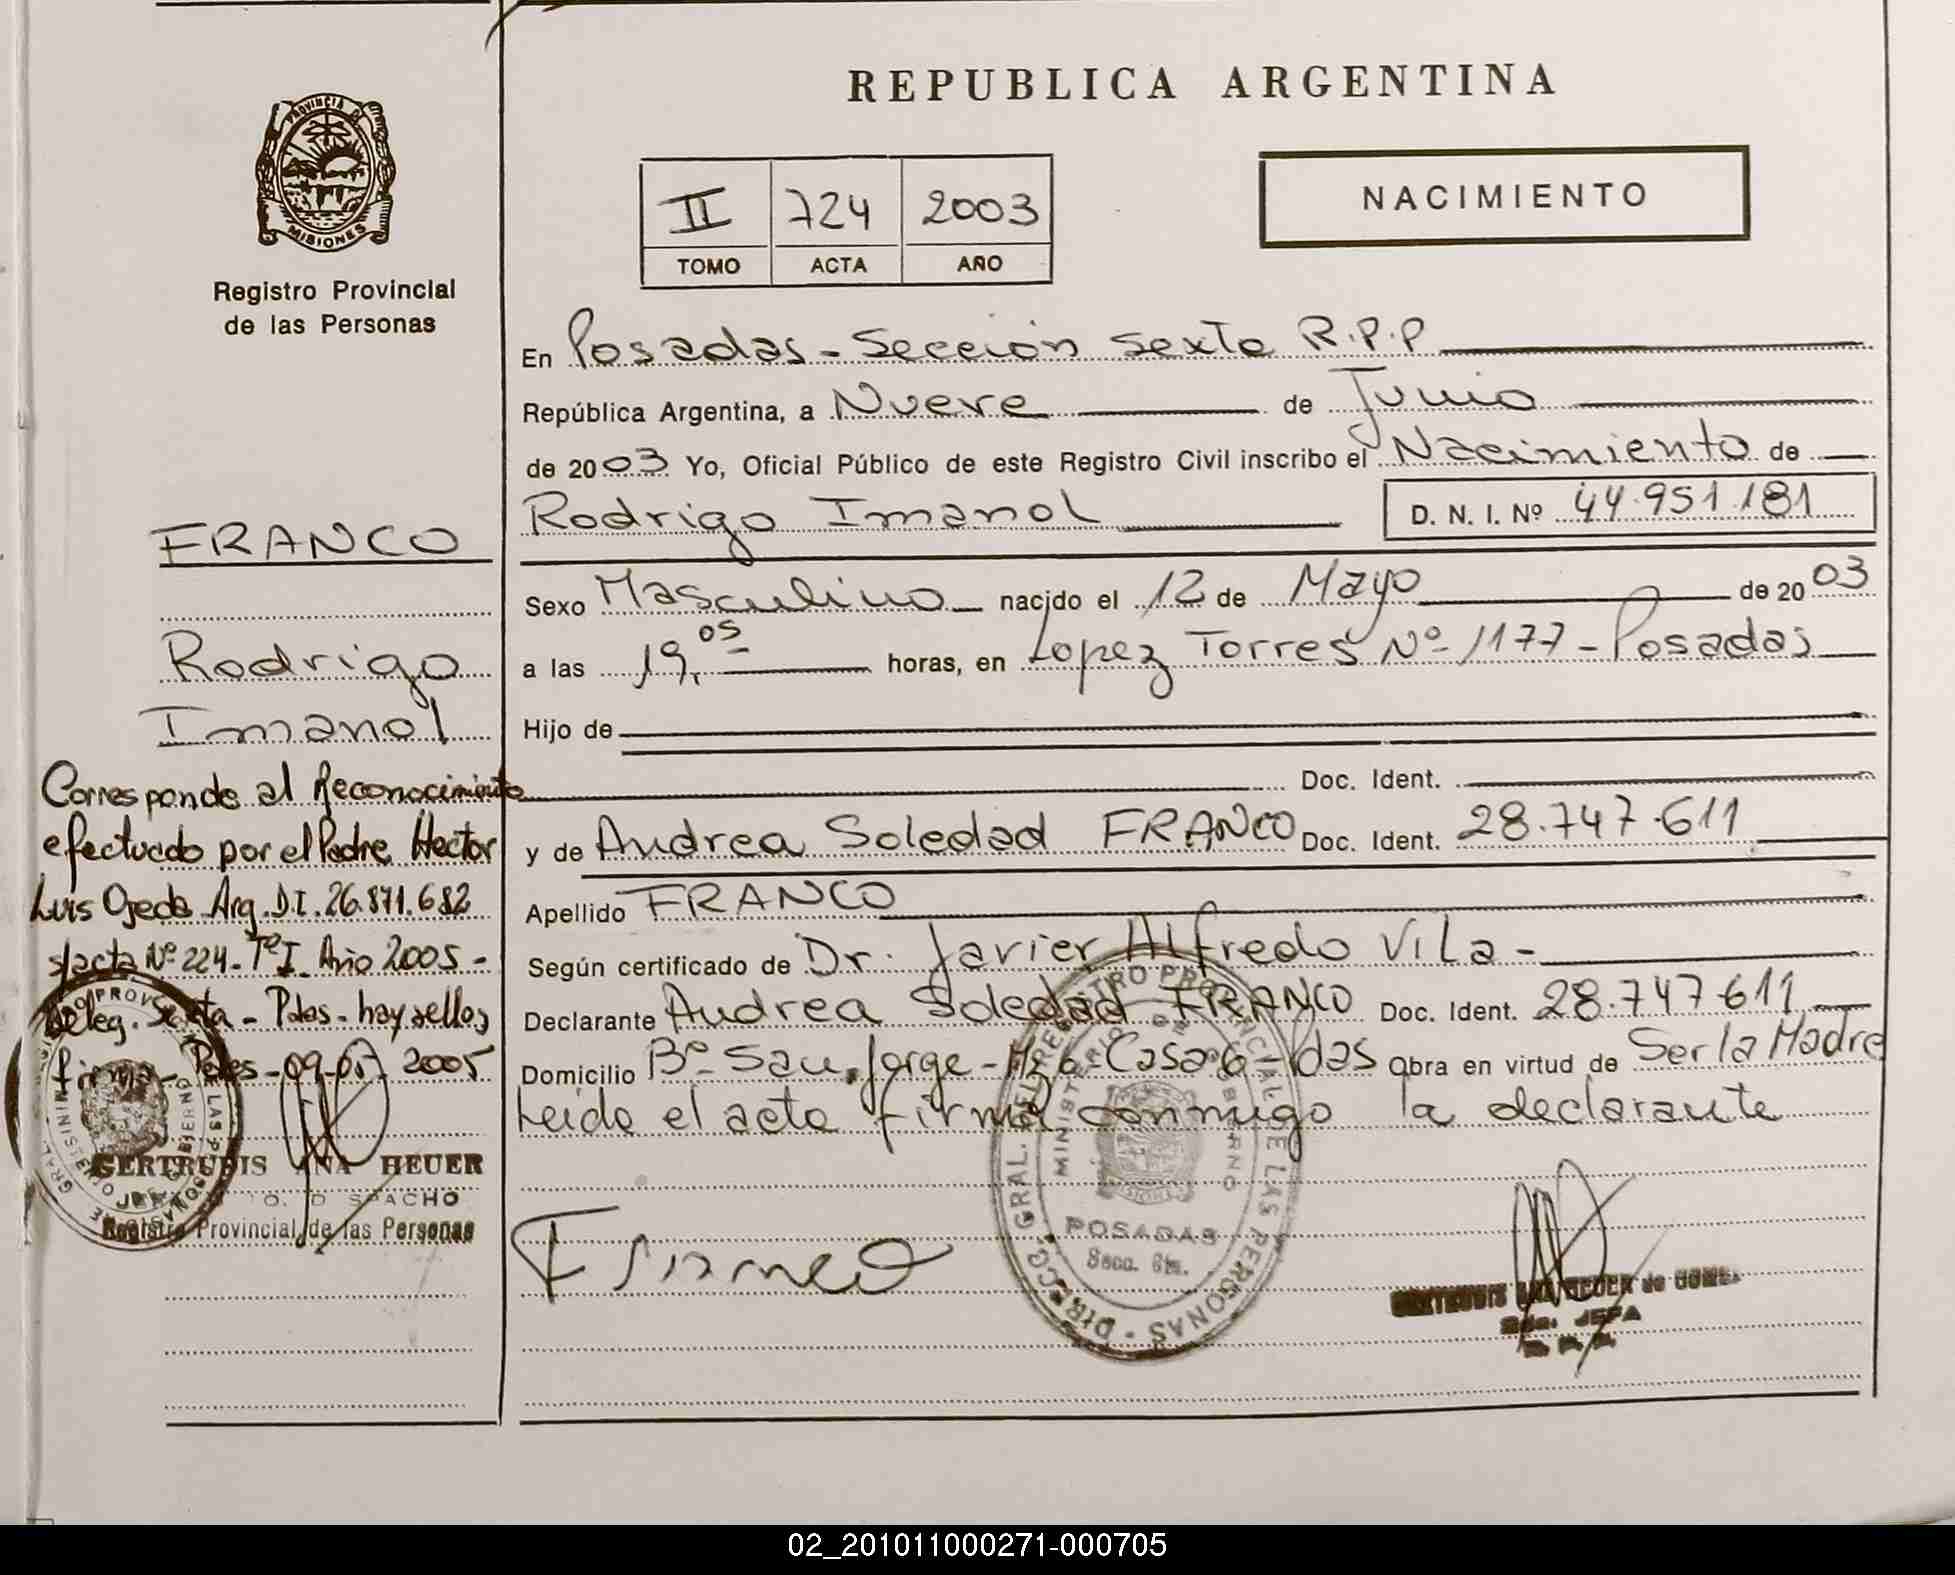 REPUBLICA ARGENTINA
PROVINCIA DE
MISIONES
Registro Provincial
de las Personas
II 724 2003
TOMO ACTA AÑO
NACIMIENTO
En Posadas - Sección Sexta R.P.P
República Argentina, a Nueve de Junio
de 2003 Yo, Oficial Público de este Registro Civil inscribo el Nacimiento de
Rodrigo Imanol D. N. I. Nº 44.951.181
Sexo Masculino nacido el 12 de Mayo de 2003
a las 19,05 horas, en Lopez Torres Nº 1177 - Posadas
Hijo de
Doc. Ident.
y de Andrea Soledad FRANCO Doc. Ident. 28.747.611
Apellido FRANCO
Según certificado de Dr. Javier Alfredo Vila -
Declarante Andrea Soledad FRANCO Doc. Ident. 28.747.611
Domicilio Bº San Jorge - Casa 6 - Pdas Obra en virtud de Ser la Madre
Leida el acta firma conmigo la declarante
Franco
DIRECC. GRAL. DEL REGISTRO PROVINCIAL DE LAS PERSONAS
MINISTERIO DE GOBIERNO
MISIONES
POSADAS
Secc. 6ta.
GERTRUDIS ANA HEUER de
JEFA
FRANCO
Rodrigo
Imanol
Corresponde al Reconocimiento
efectuado por el Padre Hector
Luis Ojeda Arg. D.I. 26.871.682
s/acta Nº 224 - Tº I. Año 2005 -
Deleg. Sexta - Pdas - hay sello y
firma - Pdas - 09-05-2005
GERTRUDIS ANA HEUER
JEFA DESPACHO
Registro Provincial de las Personas
02_201011000271-000705